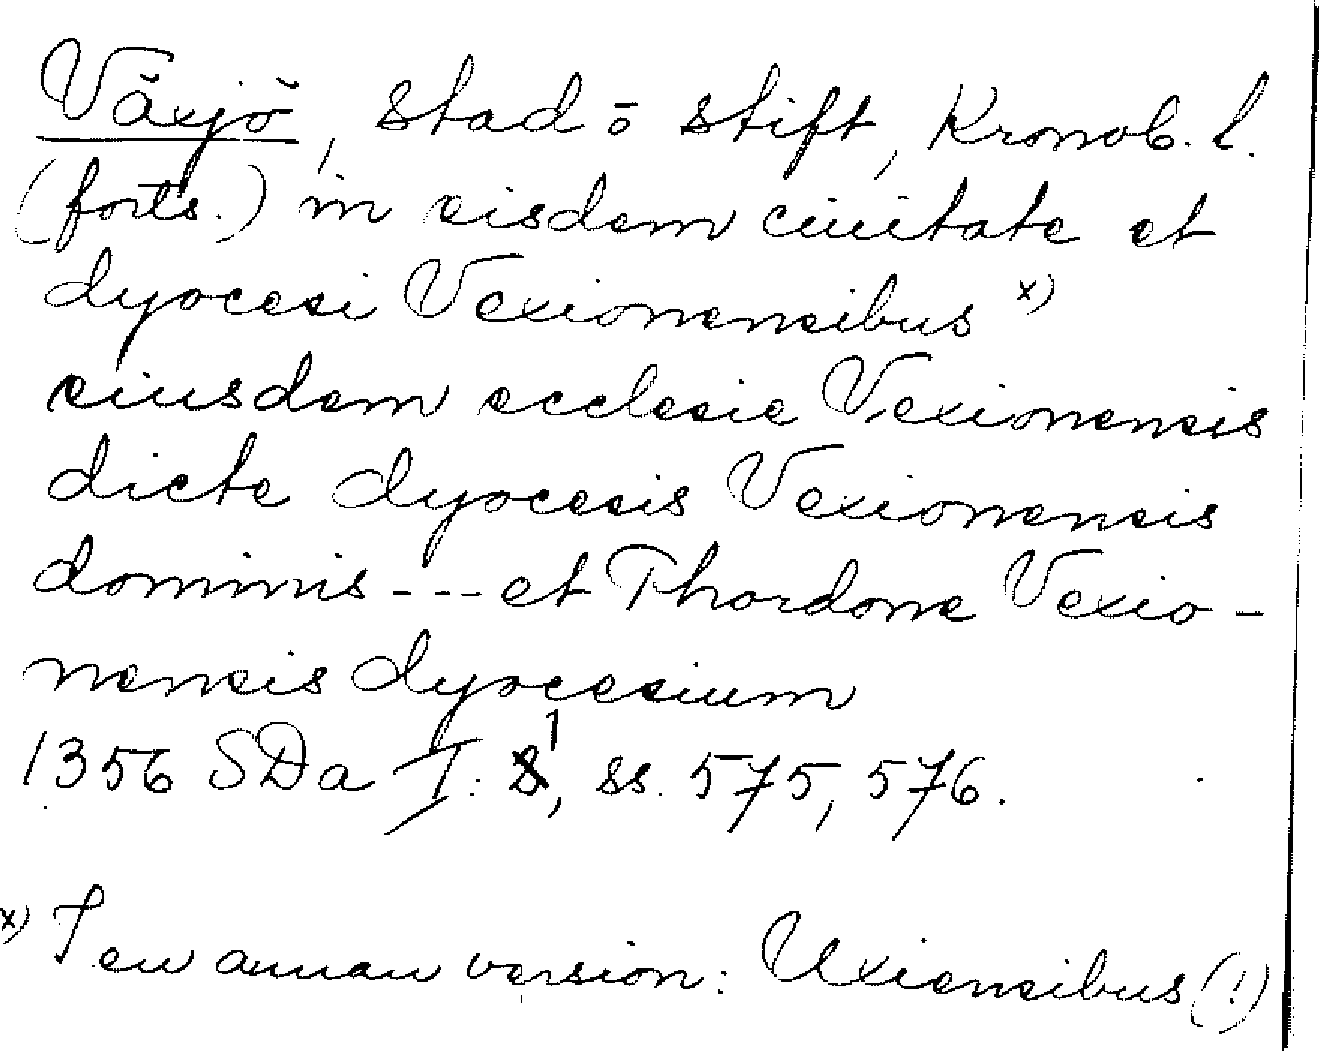 Växjö, stad o stift, Kronob. l.
(forts.) in eisdem ciuitate et
dyocesi Vexionensibus x)
eiusdem ecclesie Vexionensis
dicte dyocesis Vexionensis
dominis --- et Thordone Vexio-
nensis dyocesium
1356 SDa I: 1, ss. 575, 576.
x) I en annan version: Uxiensibus (!)